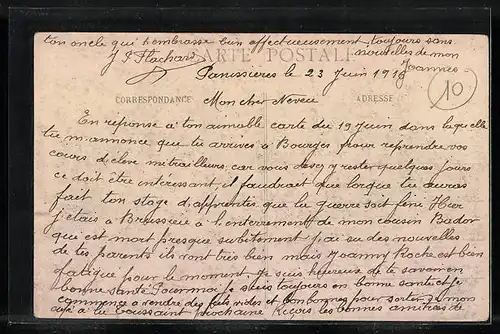 ton oncle qui t'embrasse bien affectueusement toujours sans
J P Flachard nouvelles de mon
Joannès
CARTE POSTALE
Panissières le 23 Juin 1918
10
CORRESPONDANCE Mon cher Neveu ADRESSE
En réponse à ton aimable carte du 19 Juin dans laquelle
tu m'annonce que tu arrives à Bourges pour reprendre vos
cours d'élève mitrailleurs, car vous devez y rester quelques jours
ce doit être interessant, il faudrait que lorque tu auras
fait ton stage d'apprentis que la guerre soit fini Hier
j'étais à Bussieu à l'enterrement de mon cousin Bador
qui est mort presque subitement j'ai eu des nouvelles
de tes parents ils vont très bien mais Joanny Roche est bien
fatigué pour le moment, Je suis heureux de te savoir en
bonne santé Pour moi je suis toujours en bonne santé et je
commence a vendre des fûts vides et bonbonnes pour sortir de mon
à la Toussaint prochaine Reçois les bonnes amitiés de